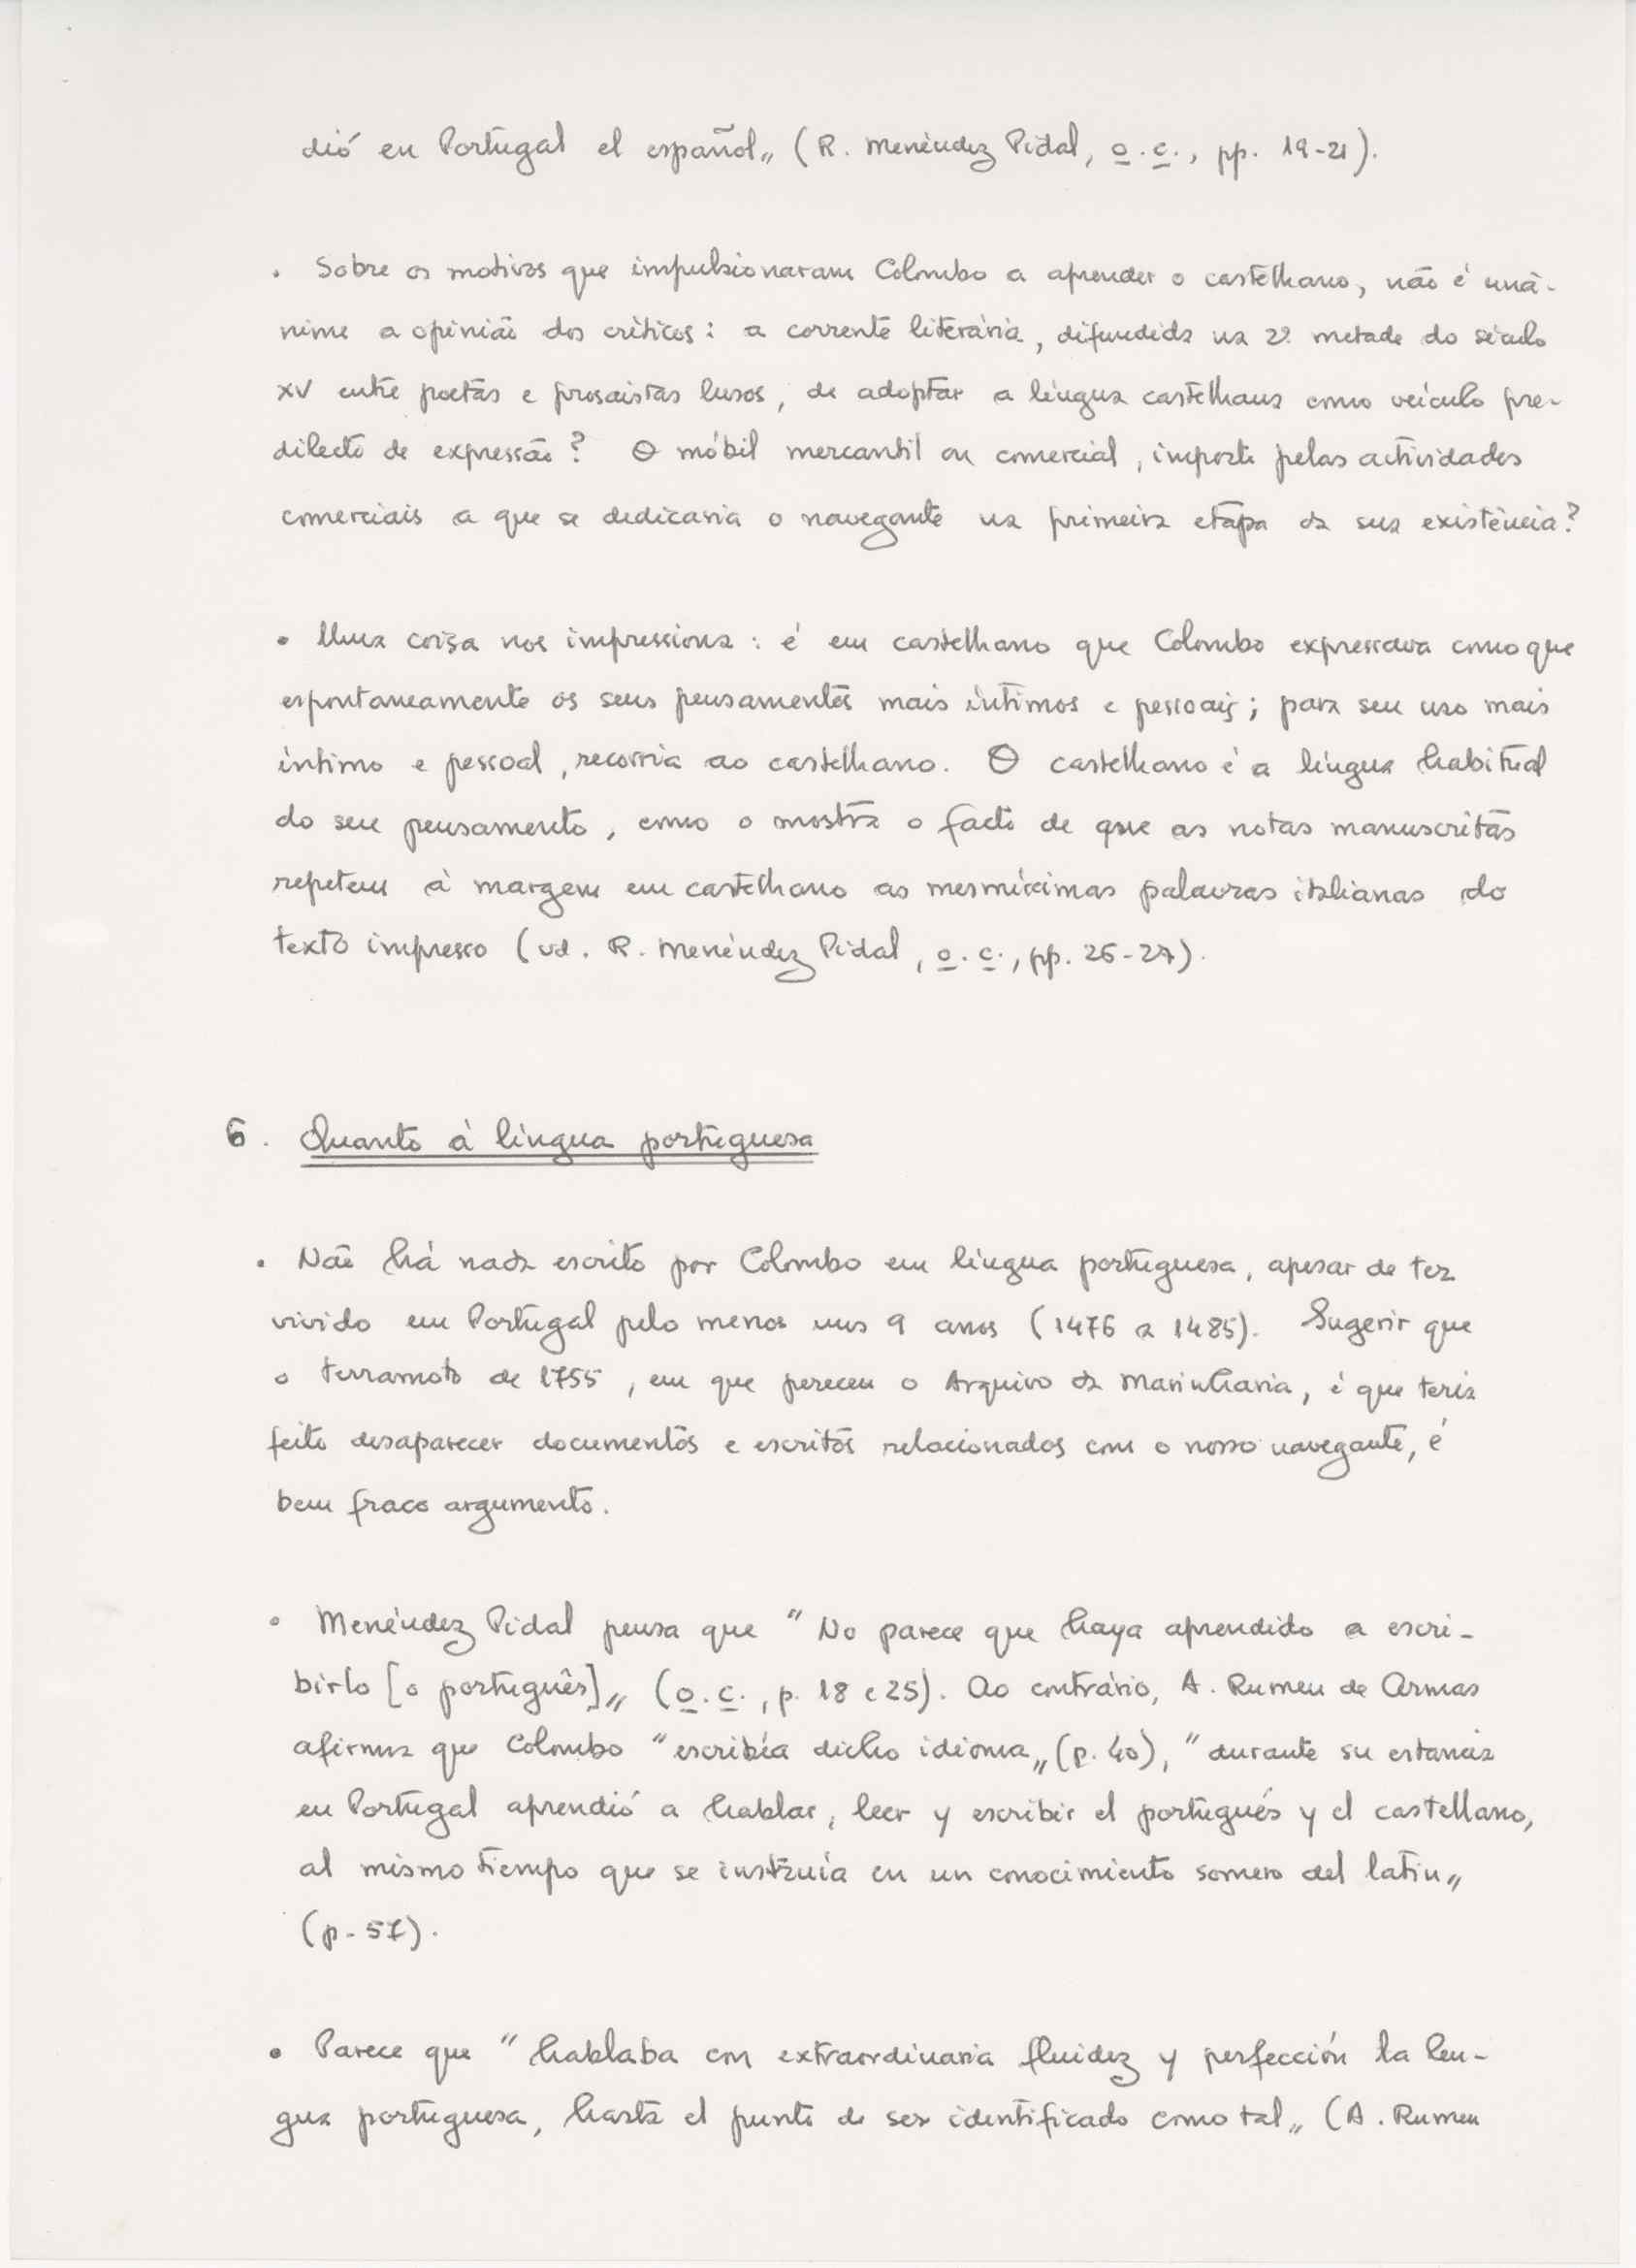 dió en Portugal el español„ (R. Menéndez Pidal, o.c., pp. 19-21).
. Sobre os motivos que impulsionaram Colombo a aprender o castelhano, não é unâ-
nime a opinião dos críticos: a corrente literária, difundida na 2ª metade do século
XV entre poetas e prosaistas lusos, de adoptar a língua castelhana como veículo pre-
dilecto de expressão? O móbil mercantil ou comercial, imposto pelas actividades
comerciais a que se dedicaria o navegante na primeira etapa da sua existência?
. Uma coisa nos impressiona: é em castelhano que Colombo expressava como que
espontaneamente os seus pensamentos mais íntimos e pessoais; para seu uso mais
íntimo e pessoal, recorria ao castelhano. O castelhano é a língua habitual
do seu pensamento, como o mostra o facto de que as notas manuscritas
repetem à margem em castelhano as mesmíssimas palavras italianas do
texto impresso (vd. R. Menéndez Pidal, o.c., pp. 26-27).
6. Quanto à língua portuguesa
. Não há nada escrito por Colombo em língua portuguesa, apesar de ter
vivido em Portugal pelo menos uns 9 anos (1476 a 1485). Sugerir que
o terramoto de 1755, em que pereceu o Arquivo da Marinharia, é que teria
feito desaparecer documentos e escritos relacionados com o nosso navegante, é
bem fraco argumento.
. Menéndez Pidal pensa que "No parece que haya aprendido a escri-
birlo [o português]„ (o.c., p. 18 e 25). Ao contrário, A. Rumeu de Armas
afirma que Colombo "escribía dicho idioma„ (p. 40), "durante su estancia
en Portugal aprendió a hablar, leer y escribir el portugués y el castellano,
al mismo tiempo que se instruía en un conocimiento somero del latin„
(p. 57).
. Parece que "hablaba con extraordinaria fluidez y perfección la len-
gua portuguesa, hasta el punto de ser identificado como tal„ (A. Rumeu